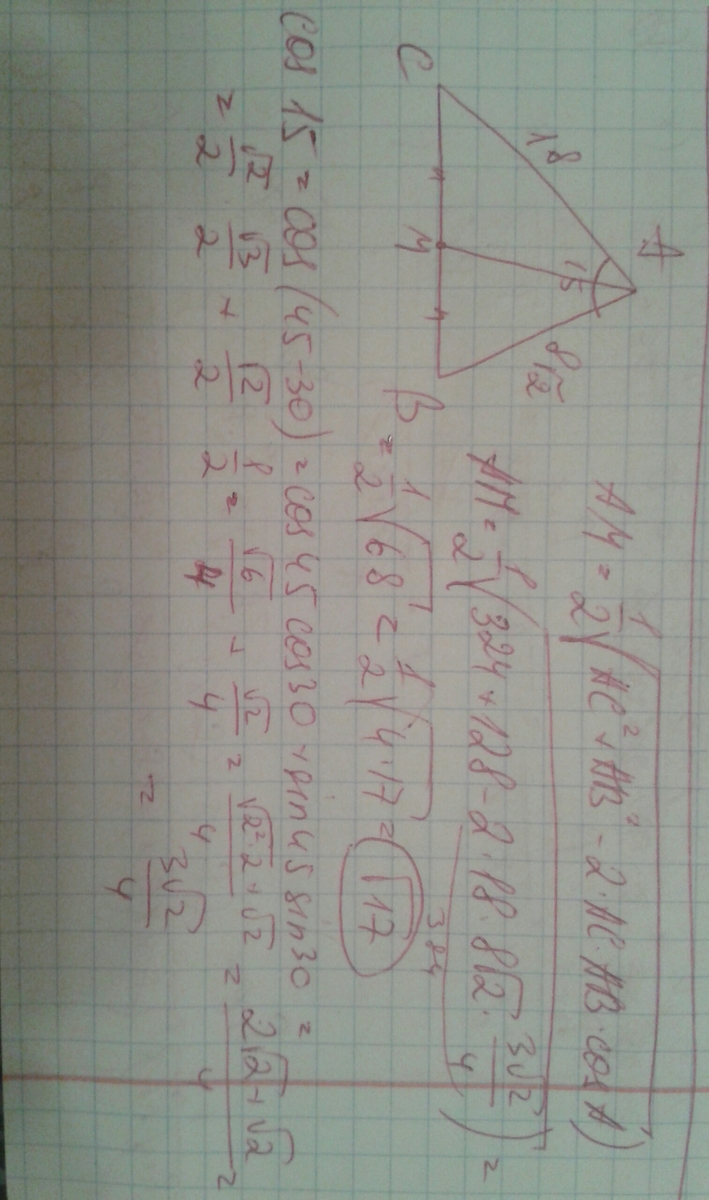 A
18
15
8√2
C
M
B
AM = 1/2 √(AC² + AB² - 2·AC·AB·cos A)
AM = 1/2 √(324 + 128 - 2·18·8√2· 3√2/4) =
384
= 1/2 √68 = 1/2 √4·17 = √17
cos 15 = cos (45-30) = cos 45 cos 30 + sin 45 sin 30 =
= √2/2 √3/2 + √2/2 1/2 = √6/4 + √2/4 = √2²·2 + √2/4 = 2√2 + √2/4 =
= 3√2/4